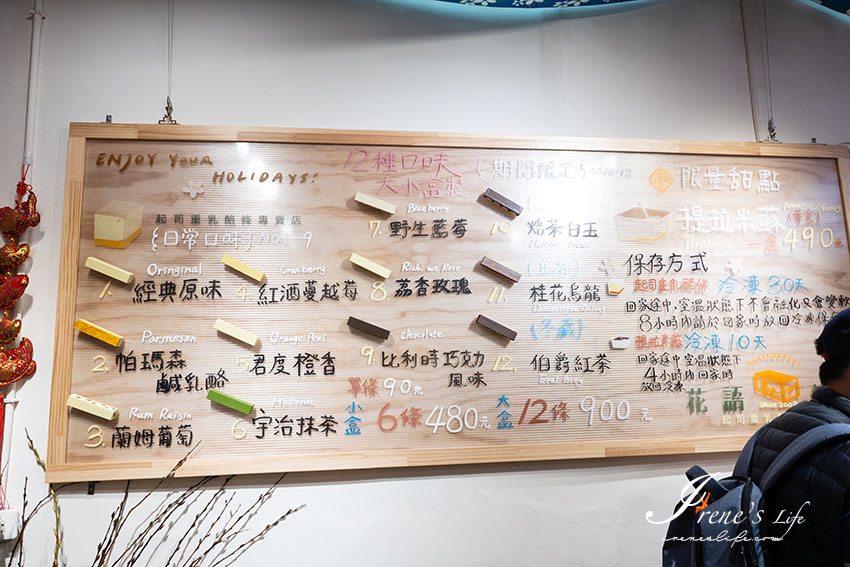 ENJOY YOUR
HOLIDAYS!
起司重乳酪條專賣店
{日常口味} No.1-9
1. Oringinal
經典原味
2. Parmesan
帕瑪森
鹹乳酪
3. Rum Raisin
蘭姆葡萄
4. Cranberry
紅酒蔓越莓
5. Orange Peel
君度橙香
6. Matcha
宇治抹茶
12種口味
大小盒裝
7. Blueberry
野生藍莓
8. Richi wc Rose
荔香玫瑰
9. Chocolate
比利時巧克力
風味
(期間限定) No.10-12
10.
焙茶白玉
11.
桂花烏龍
12.
伯爵紅茶
Earl Grey
單條 90元
小盒 6條 480元
大盒 12條 900元
限量甜點
提拉米蘇
Tiramisu 一盒 490元
保存方式
起司重乳酪條 冷凍30天
回家途中,室溫狀態下不會融化只會變軟
8小時內請於回家時放回冷凍保存
提拉米蘇 冷凍10天
回家途中室溫狀態下
4小時內回家時
放回冷凍
花語
since 2008
起司重乳酪
Irene's Life
ireneslife.com